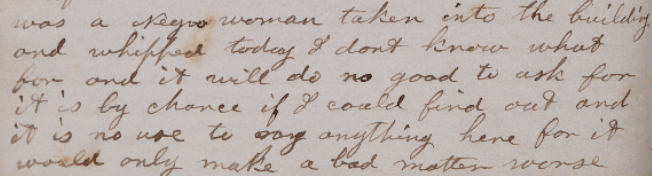 was a Negro woman taken into the building
and whipped today I dont know what
for and it will do no good to ask for
it is by chance if I could find out and
it is no use to say anything here for it
would only make a bad matter worse